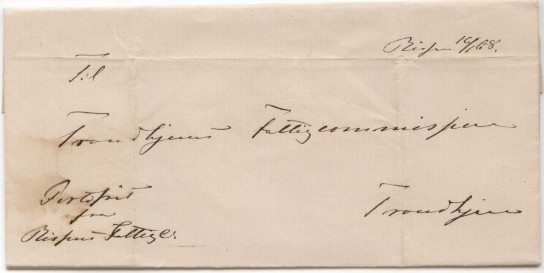 Rissen 16/1 68.
Til
Trondhjems Fattigcommission
Portofrit
fra
Rissens Fattigc.
Trondhjem